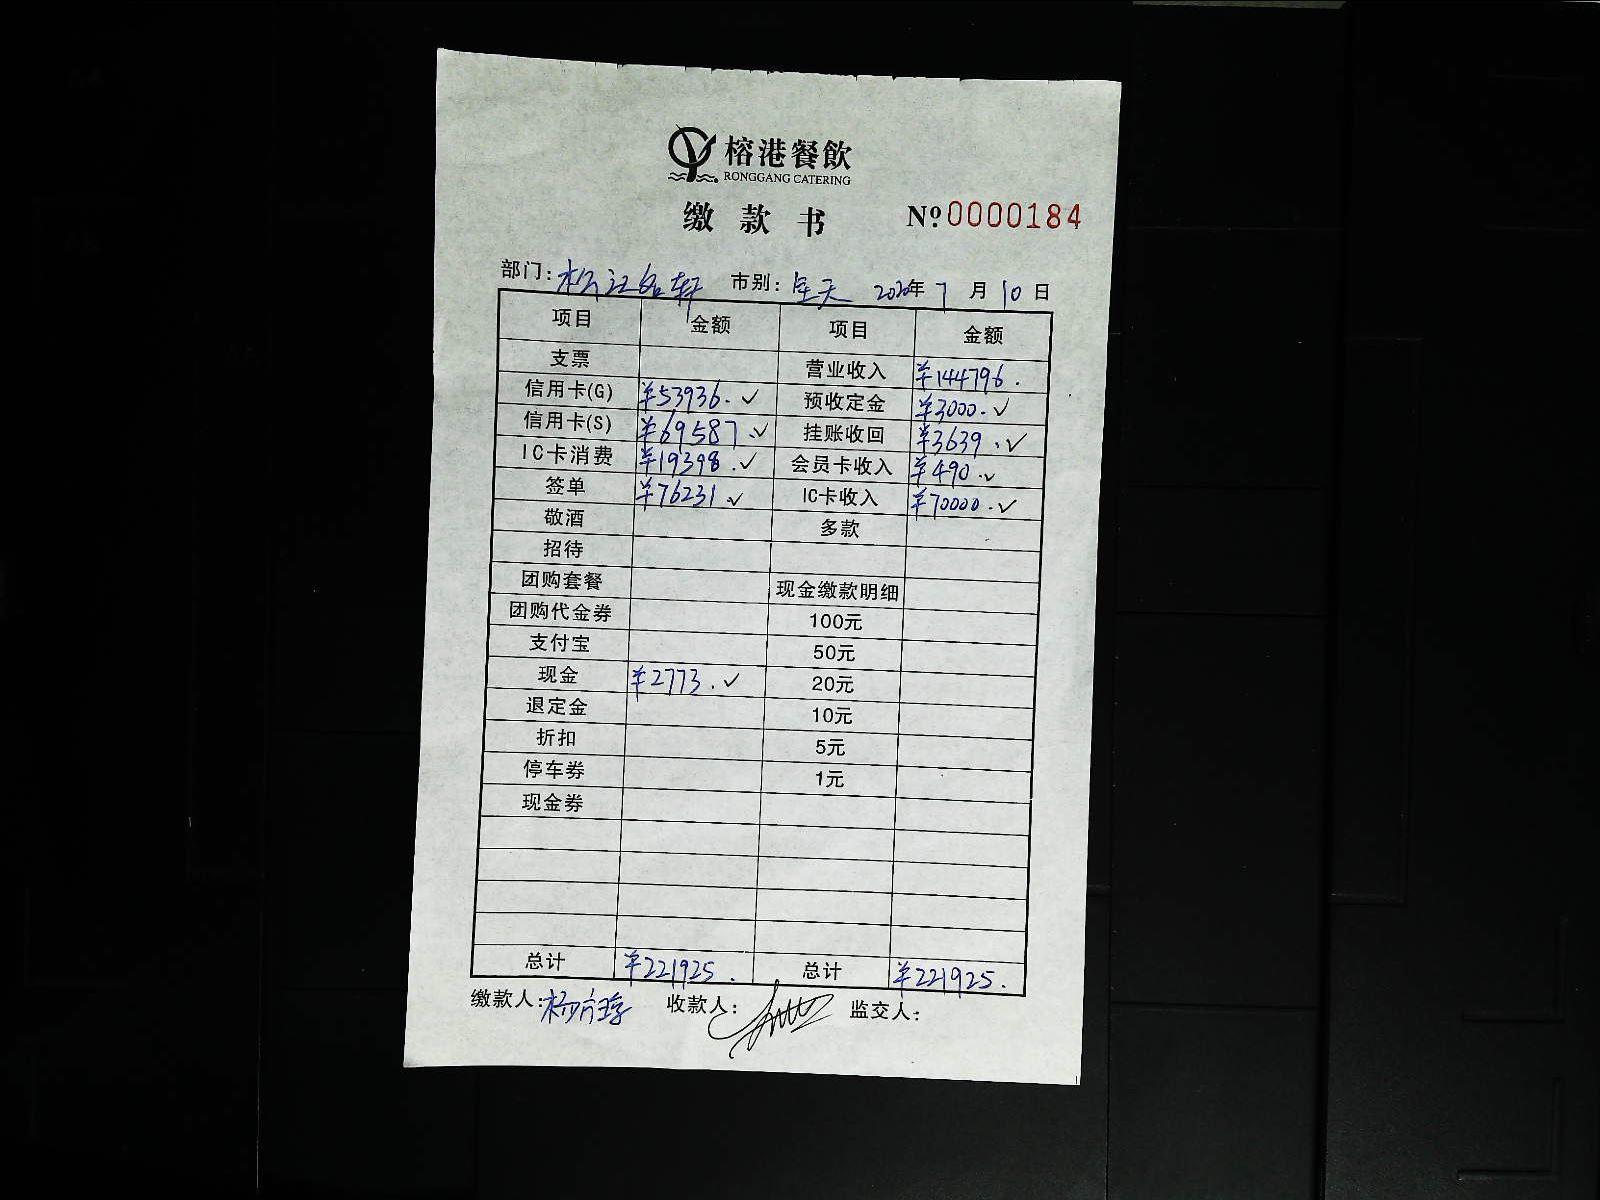 榕港餐飲
RONGGANG CATERING
缴款书 №0000184
部门: 松江名轩 市别: 全天 2020年 7月10日
项目 金额 项目 金额
支票 营业收入 ¥144796.
信用卡(G) ¥53936. ✓ 预收定金 ¥3000. ✓
信用卡(S) ¥69587. ✓ 挂账收回 ¥3639. ✓
IC卡消费 ¥19398. ✓ 会员卡收入 ¥490. ✓
签单 ¥76231 ✓ IC卡收入 ¥70000. ✓
敬酒 多款
招待
团购套餐 现金缴款明细
团购代金券 100元
支付宝 50元
现金 ¥2773. ✓ 20元
退定金 10元
折扣 5元
停车券 1元
现金券
总计 ¥221925. 总计 ¥221925.
缴款人: 收款人: 监交人: